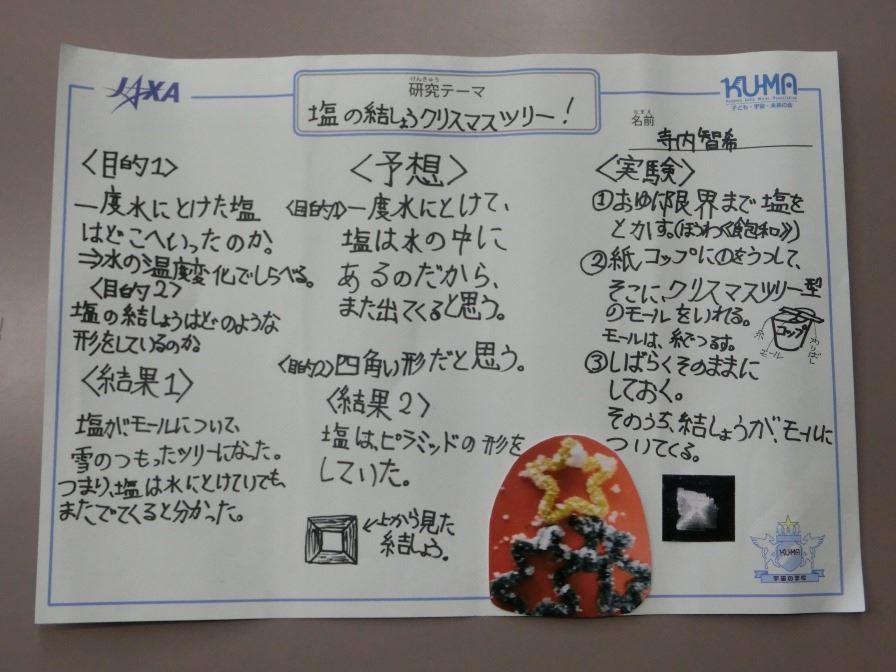 JAXA
けんきゅう
研究テーマ
塩の結しょうクリスマスツリー!
KU-MA
子ども・宇宙・未来の会
なまえ
名前
寺内智希
〈目的1〉
一度水にとけた塩
はどこへいったのか。
⇒水の温度変化でしらべる。
〈目的2〉
塩の結しょうはどのような
形をしているのか。
〈結果1〉
塩が、モールについて、
雪のつもったツリーになった。
つまり、塩は水にとけていても、
またでてくると分かった。
〈予想〉
〈目的1〉一度水にとけて、
塩は水の中に
あるのだから、
また出てくると思う。
〈目的2〉四角い形だと思う。
〈結果2〉
塩は、ピラミッドの形を
していた。
←上から見た
結しょう。
〈実験〉
①おゆに限界まで塩を
とかす。(ほうわ《飽和》)
②紙コップに①をうつして、
そこに、クリスマスツリー型
のモールをいれる。
モールは、糸でつるす。
コップ
モール
わりばし
③しばらくそのままに
しておく。
そのうち、結しょうが、モールに
ついてくる。
KU-MA
宇宙の学校